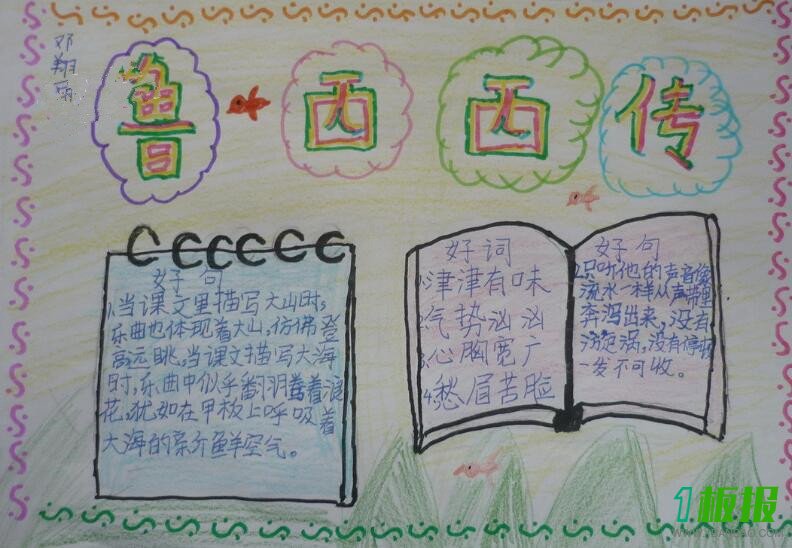 鲁西西传
邓翔雨
好句
1.当课文里描写大山时,
乐曲也体现着大山,仿佛登
高远眺。当课文描写大海
时,乐曲中似乎翻滚着浪
花,犹如在甲板上呼吸着
大海的新鲜空气。
好词
1.津津有味
2.气势汹汹
3.心胸宽广
4.愁眉苦脸
好句
只听他的声音像
流水一样从声带里
奔泻出来,没有
漩涡,没有停顿
一发不可收。
1板报